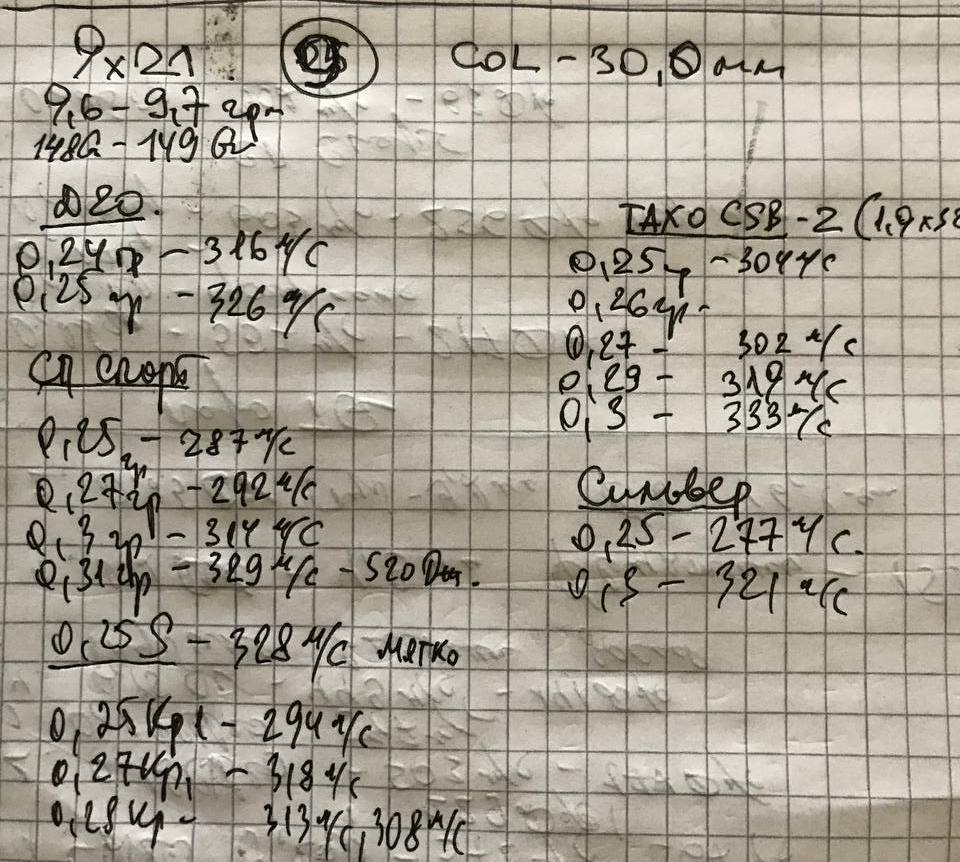 9x21 COL - 30,0 мм
9,6 - 9,7 гр
148Gr - 149 Gr
Д20.
0,24 гр - 316 м/с
0,25 гр - 326 м/с
СП спорт
0,25 гр - 287 м/с
0,27 гр - 292 м/с
0,3 гр - 314 м/с
0,31 гр - 329 м/с - 520 Дж.
0,25 S - 328 м/с мягко
0,25 Кр1 - 294 м/с
0,27 Кр1 - 318 м/с
0,28 Кр - 313 м/с, 308 м/с
TAXO CSB - 2 (1,9x38
0,25 гр - 304 м/с
0,26 гр -
0,27 - 302 м/с
0,29 - 319 м/с
0,3 - 333 м/с
Сильвер
0,25 - 277 м/с.
0,3 - 321 м/с